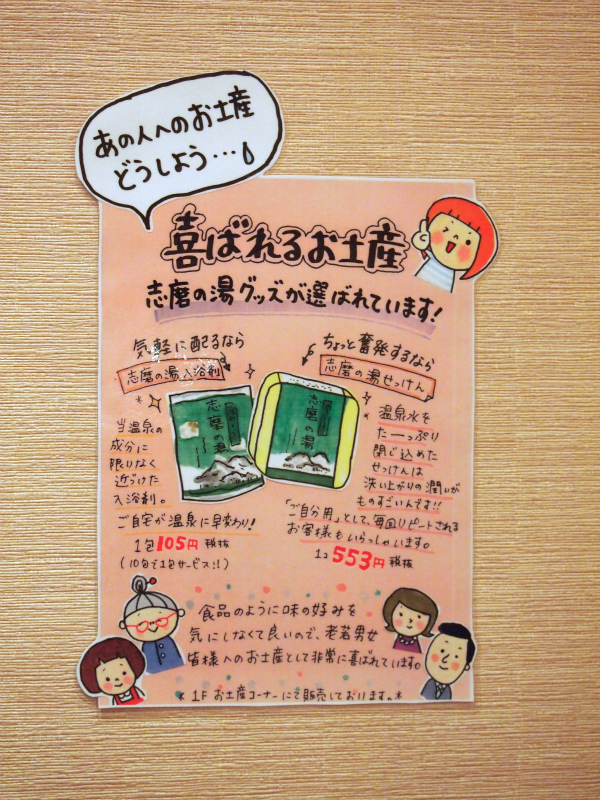 あの人へのお土産
どうしよう…
喜ばれるお土産
志磨の湯グッズが選ばれています!
気軽に配るなら
志磨の湯入浴剤
志磨の湯
当温泉の
成分に
限りなく
近づけた
入浴剤。
ご自宅が温泉に早変わり!
1包105円 税抜
(10包で1包サービス!!)
ちょっと奮発するなら
志磨の湯せっけん
志磨の湯
温泉水を
たーっぷり
閉じ込めた
せっけんは
洗い上がりの潤いが
ものすごいんです!!
「ご自分用」として、毎回リピートされる
お客様もいらっしゃいます。
1コ 553円 税抜
食品のように味の好みを
気にしなくて良いので、老若男女
皆様へのお土産として非常に喜ばれています。
*1F お土産コーナーにて販売しております。*